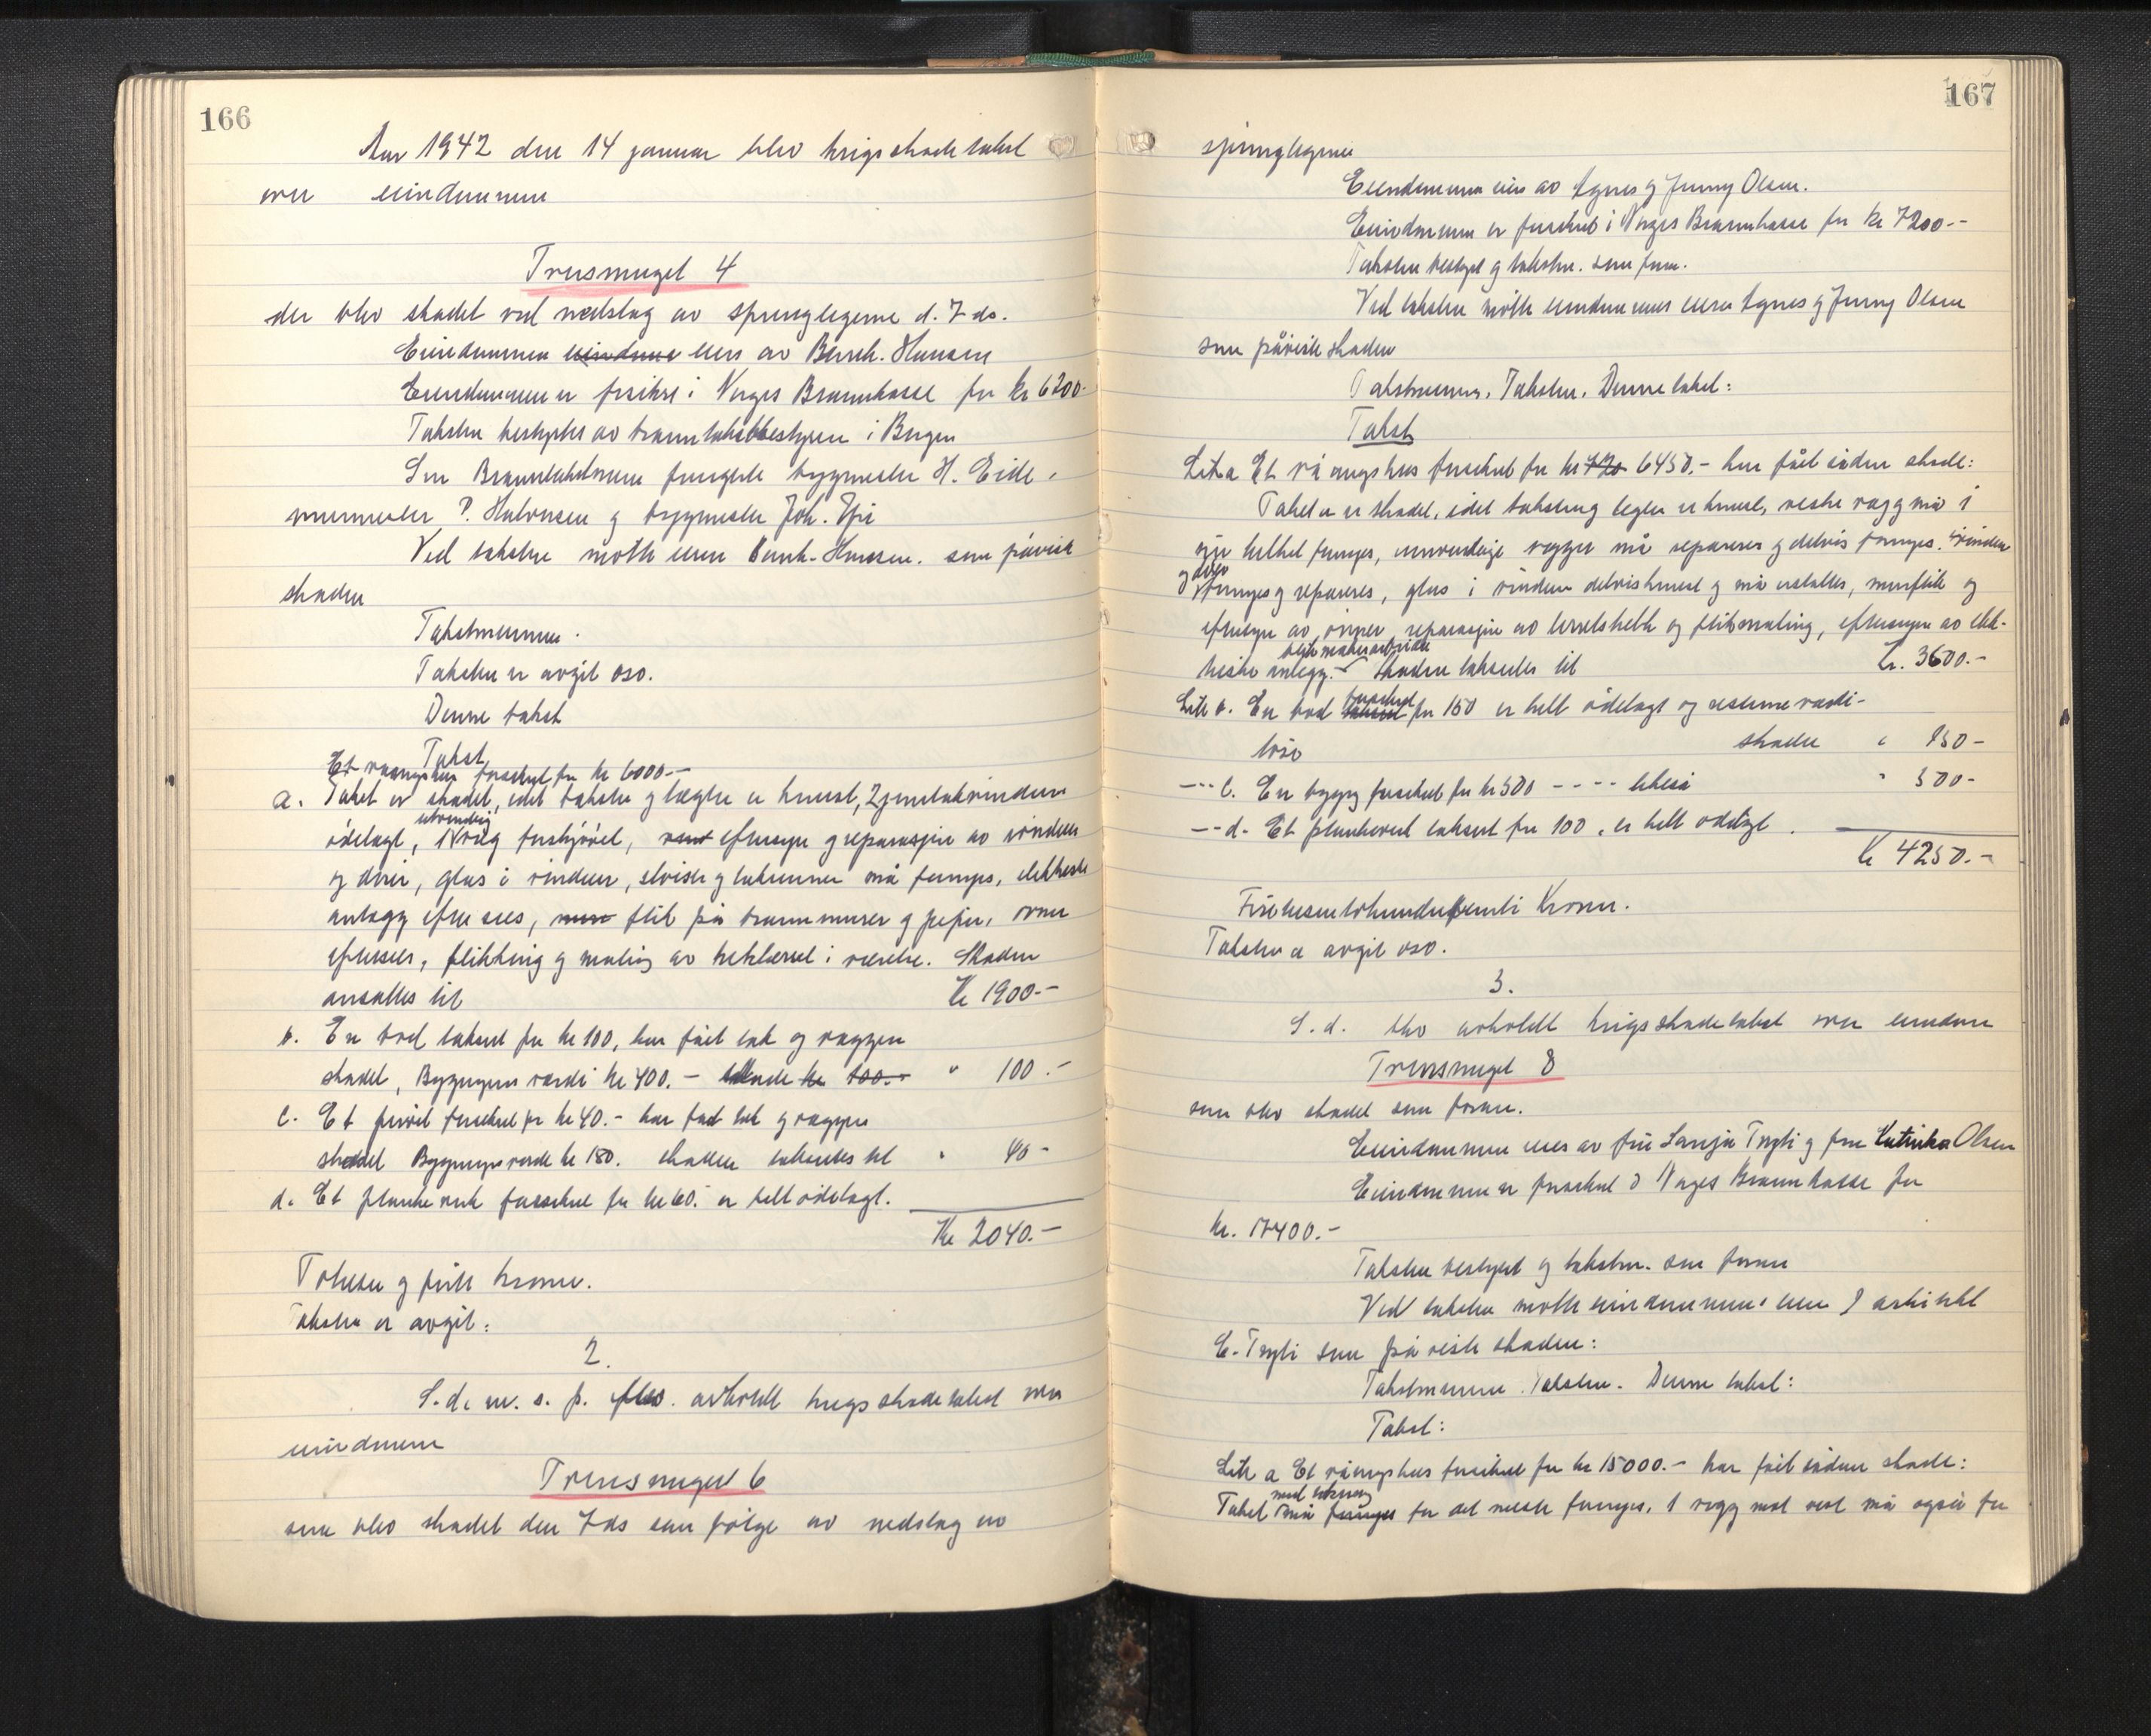 166
Aar 1942 den 14 januar blev krigsskadetakst
over eiendommen
Trusmuget 4
der blev skadet ved nedslag av spranglegeme d. 7 ds.
Eiendommen eiendome eies av Bernh. Hansen
Eiendommen er forsikre i Norges Brannkasse for kr 6200-
Taksten bestyrtes av branntakstbestyrer i Bergen
Som Branntakstmenn fungerte byggmester H. Eide,
murmester P. Halvorsen og byggmester Joh.
Ved taksten møtte eieren Bernh. Hansen. som påviste
skaden
Takstmennene.
Taksten er avgit oso.
Denne takst
Takst
Et vaaningshus forsikret for kr 6000.-
a. Taket er skadet, idet taksten og lægter er knust, 2 jerntakvinduer
ødelagt, utvendig 1 væg forskjøvet, efterseyn og reparasjon av vinduer
og dører, glas i vinduer, og takrenner må fornyes, elektriske
anlegg efterseees, mur flik på brannmurer og piper, ovner
efterseees, flikking og maling av i værelse. Skaden
ansættes til Kr 1900.-
b. En bod taksert for kr 100, har fåt tak og veggen
skadet, Bygningens verdi kr 400.- skade kr 100.- " 100.-
c. Et privet forsikret for kr 40.- har fået tak og veggen
skadet Bygningsverdi kr 180. skaden takseres til " 40-
d. Et plankeverk forsikret for kr 60.- er helt ødelagt.
Kr 2040.-
Totusen og firti kroner.
Taksten er avgit:
2.
S. d. m. s. p. blev avholdt krigsskadetakst over
eiendommen
Trusmuget 6
som blev skadet den 7 ds som følge av nedslag av
167
spranglegemer
Eiendommen eies av Agnes og Jenny Olsen.
Eiendommen er forsikret i Norges Brannkasse for kr 7200.-
Taksten bestyrt og takstm. som foran.
Ved taksten møtte eiendommens eiere Agnes og Jenny Olsen
som påviste skaden
Takstmennene. Taksten. Denne takst:
Takst
Lit a Et våningshus forsikret for kr 720 6450.- har fåt sådan skade:
Taket er skadet, idet taksten og legter er knust, vestre vegg må i
sin helhet fornyes, innvendige vegger må repareres og delvis fornyes. vinduer
og dører fornyes og repareres, glas i vinduer delvis knust og må erstattes, murflik og
eftersyn av ovner, reparasjon av og flikmaling, eftersyn av elek-
blikkenslagerarbeide
triske anlegg. Skaden takseres til Kr. 3600.-
Litr b. En bod taksert forsikret for 150 er helt ødelagt og resterne verdi-
løse skade " 150-
--- c. En bygg forsikret for kr 500 ---- likeså " 500-
-- d. Et plankeverk taksert for 100, er helt ødelagt.
Kr 4250.-
Firetusentohundreogfemti Kroner.
Taksten er avgit oso.
3.
S. d. blev avholdt krigsskadetakst over eiendom
Trusmuget 8
som blev skadet som foran.
Eiendommen eies av fru Tryti og fru Katinka Olsen
Eiendommen er forsikret i Norges Brannkasse for
kr. 17400.-
Taksten bestyrt og takstm. som foran
Ved taksten møtte eiendommens eier v/ arkitekt
E. Tryti som påviste skaden:
Takstmennene. Taksten. Denne takst:
Takst:
Litr a Et våningshus forsikret for kr 15000.- har fåt sådan skade:
Taket med tekning må fornyes for det meste fornyes, 1 vegg mot vest må også for